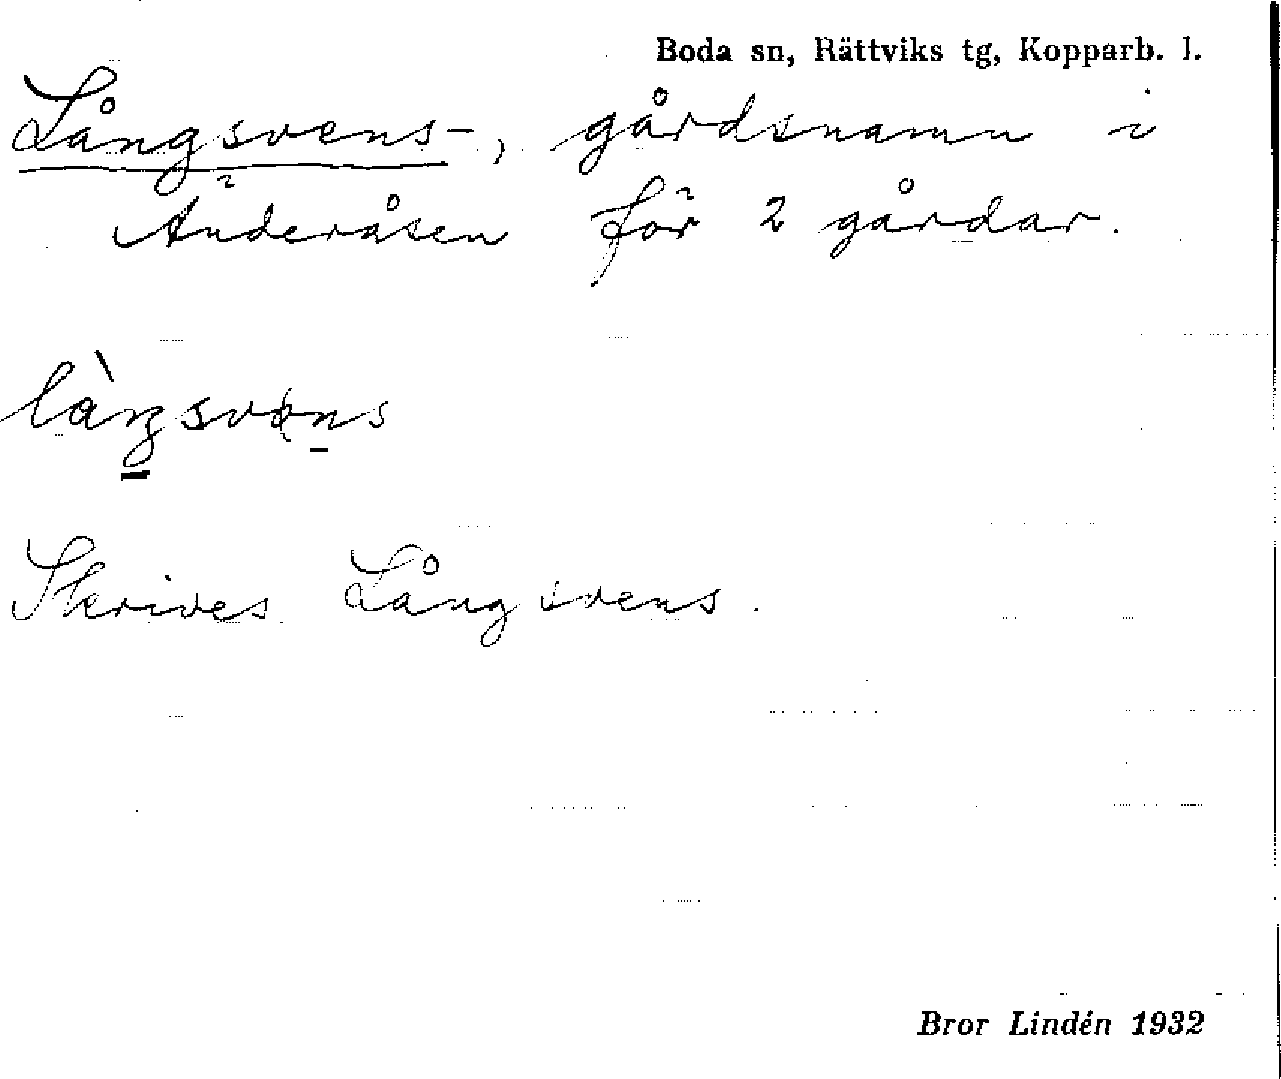 Boda sn, Rättviks tg, Kopparb. l.
Långsvens-, gårdsnamn i
Änderåsen för 2 gårdar.
Skrives Långsvens.
Bror Lindén 1932